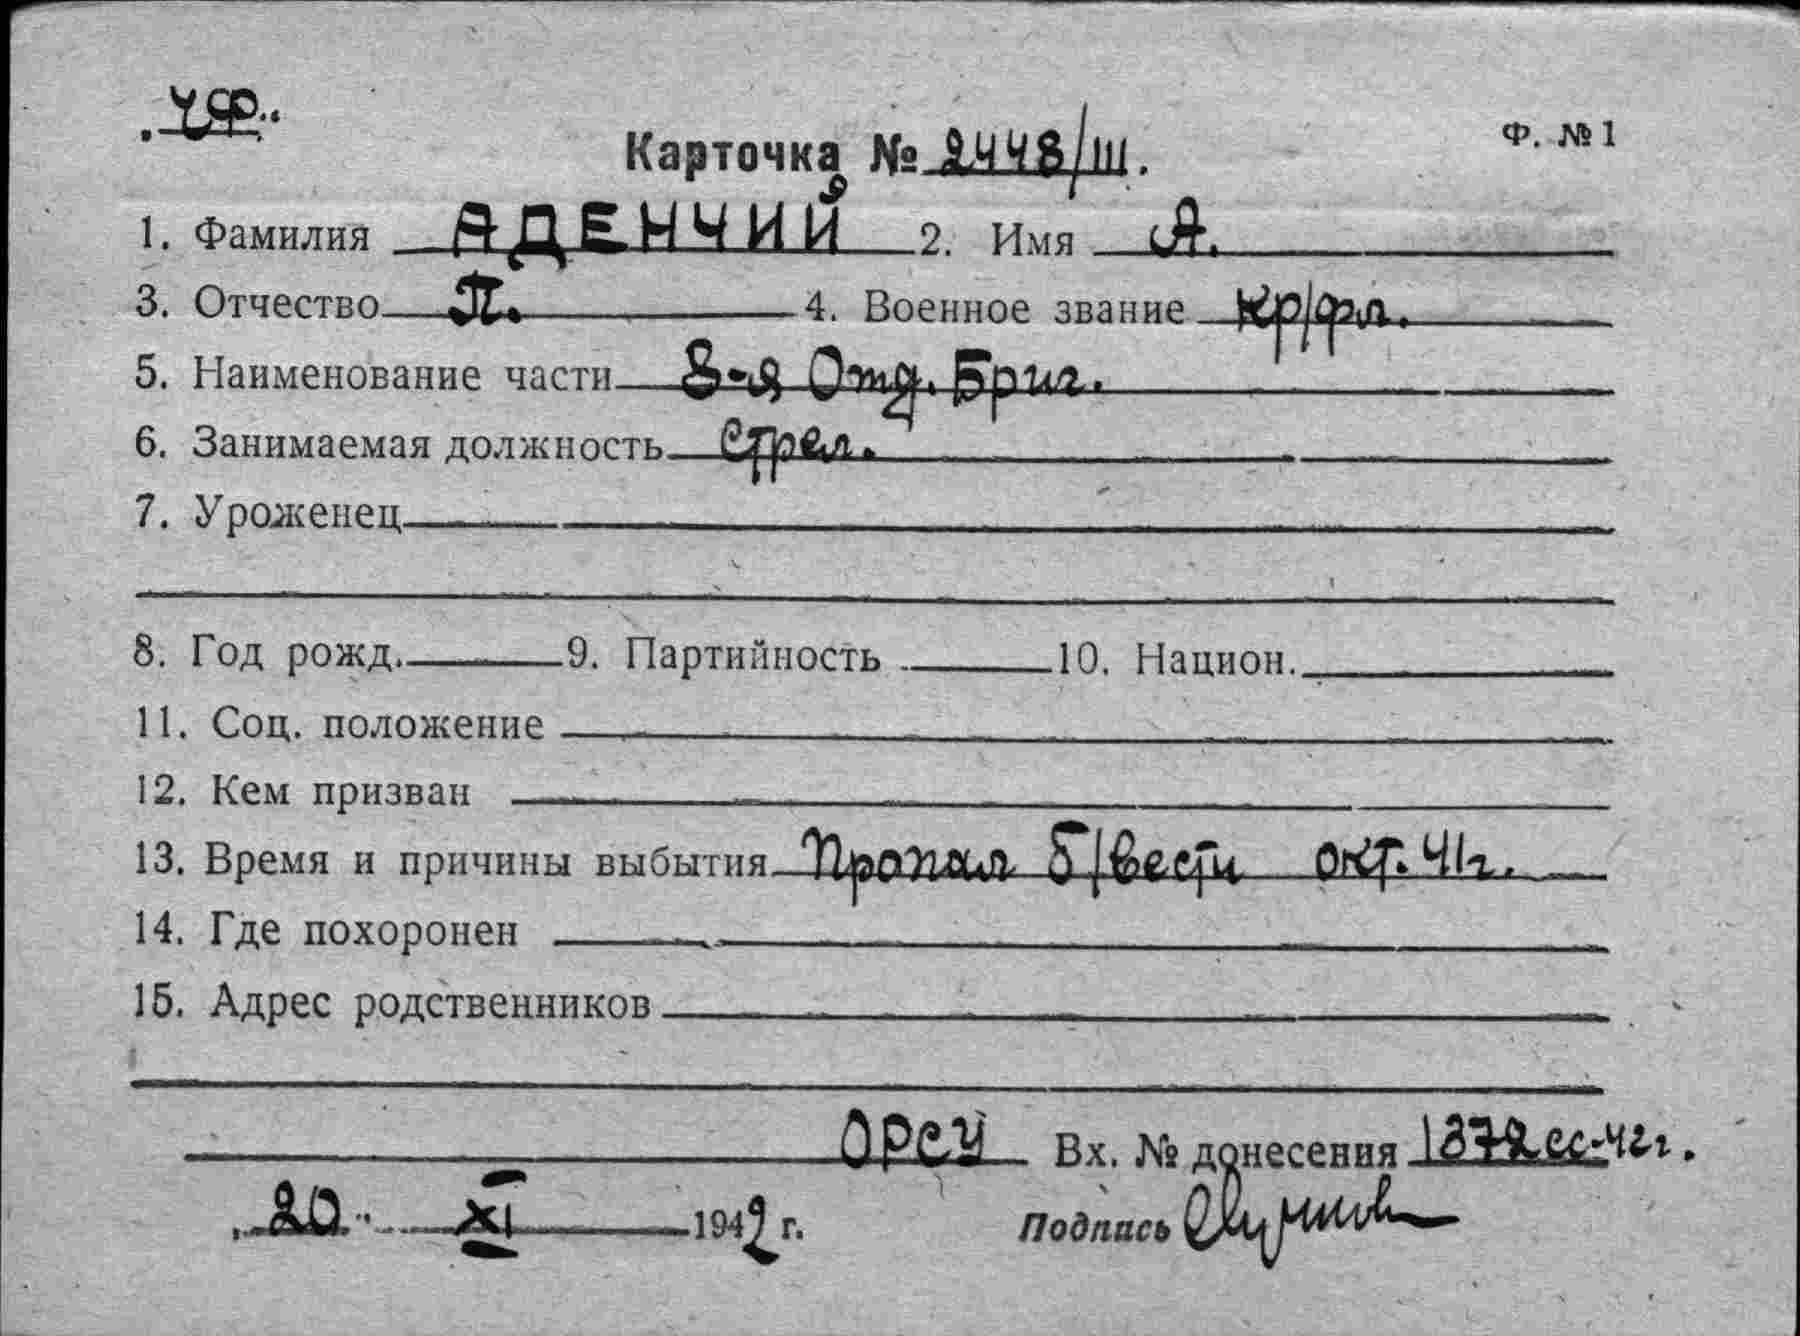 ЧФ.
Ф. №1
Карточка № 2448/Ш.
1. Фамилия АДЕНЧИЙ 2. Имя А.
3. Отчество П. 4. Военное звание кр/фл.
5. Наименование части 8-я Отд. Бриг.
6. Занимаемая должность Стрел.
7. Уроженец
8. Год рожд. 9. Партийность 10. Национ.
11. Соц. положение
12. Кем призван
13. Время и причины выбытия Пропал б/вести окт. 41г.
14. Где похоронен
15. Адрес родственников
ОРСУ Вх. № донесения 1872сс-42г.
„20“ XI 1942 г. Подпись